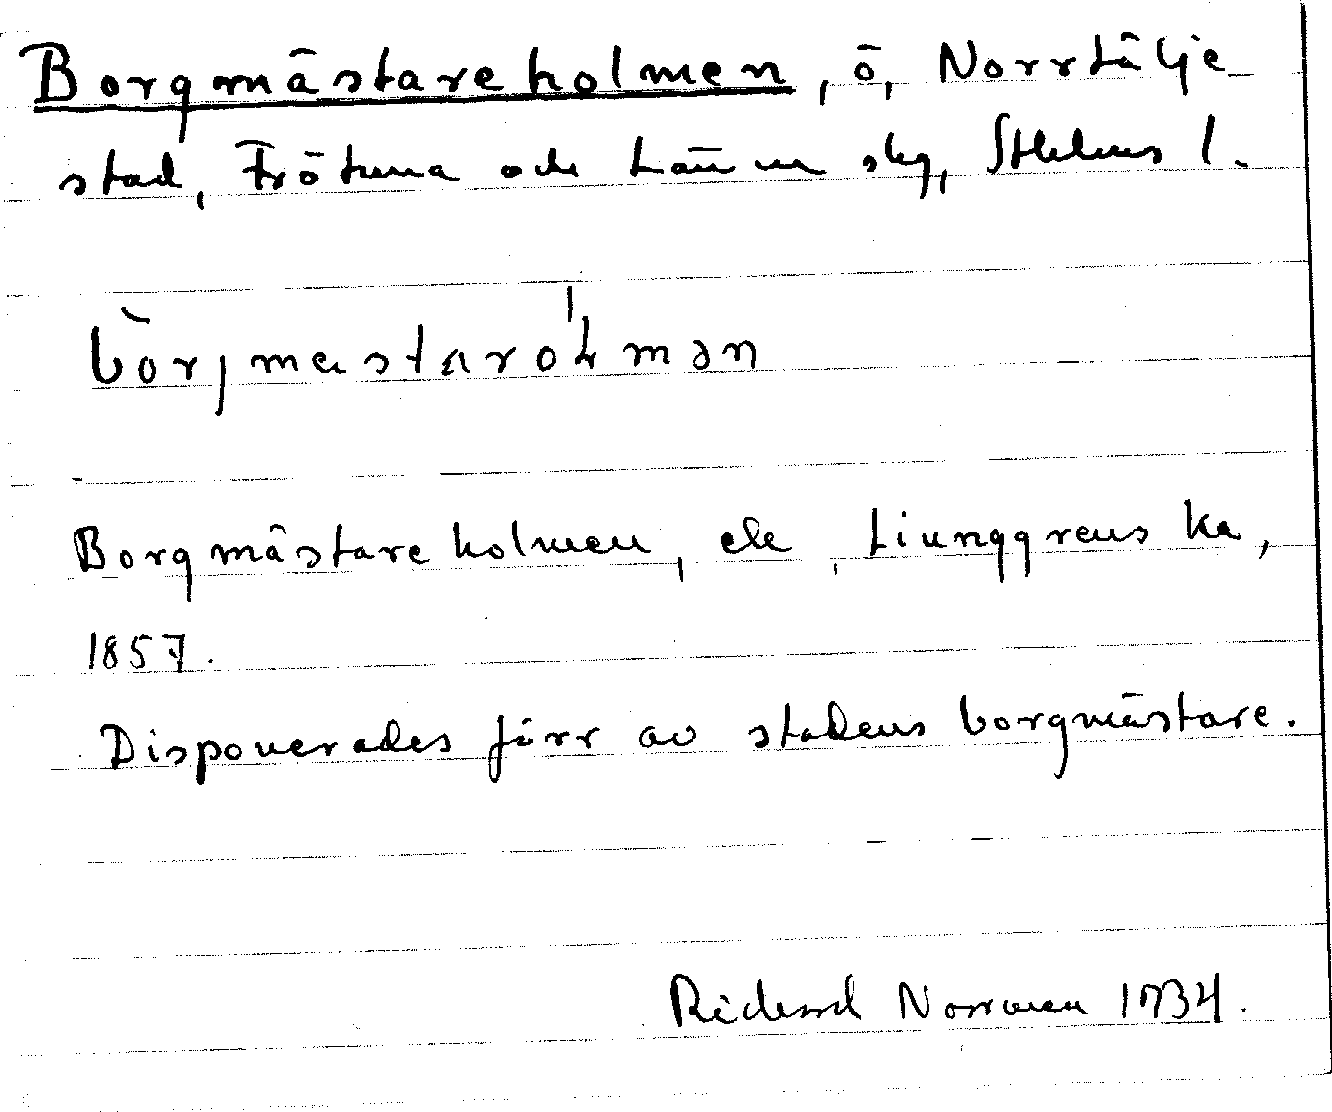 Borgmästareholmen, ö, Norrtälje
stad, Frötuna och Länna skg, Sthlms l.
bòrjmestarόlmən
Borgmästareholmen, ek, Liunggrens ka,
1857.
Disponerades förr av stadens borgmästare.
Richard Norman 1934.